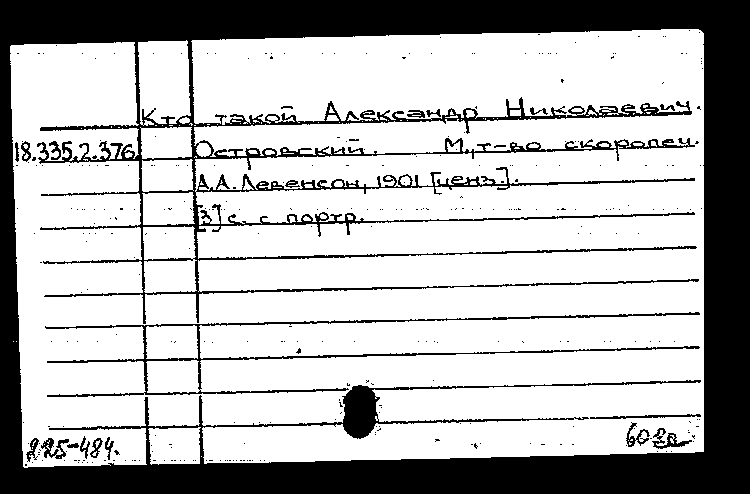 Кто такой Александр Николаевич.
18.335.2.376. Островский. М., т-во скоропеч.
А.А. Левенсон, 1901 [ценз.].
[3] с. с портр.
225-484.